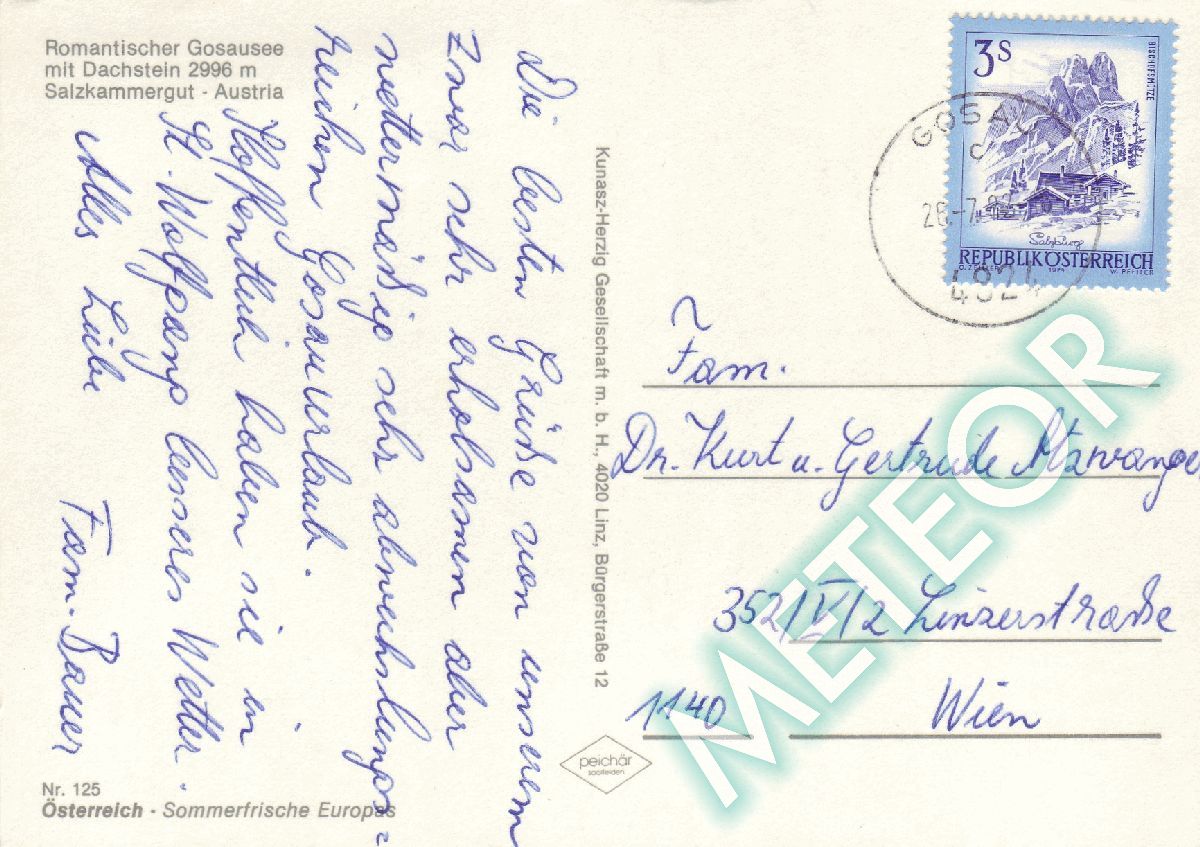 Romantischer Gosausee
mit Dachstein 2996 m
Salzkammergut - Austria
Die besten Grüße von unserem
zwar sehr erholsamen aber
wettermäßig sehr abwechslungs=
reichen Gosauurlaub.
Hoffentlich haben sie in
St. Wolfgang besseres Wetter.
Alles Liebe Fam. Bauer
Nr. 125
Österreich - Sommerfrische Europas
Kunasz-Herzig Gesellschaft m. b. H., 4020 Linz, Bürgerstraße 12
peichär
saalfelden
3S
BISCHOFSMÜTZE
Salzburg
REPUBLIK ÖSTERREICH
1974
GOSAU
c
4824
Fam.
Dr. Kurt u. Gertrude
352/V/2 Linzerstraße
1140 Wien
METEOR